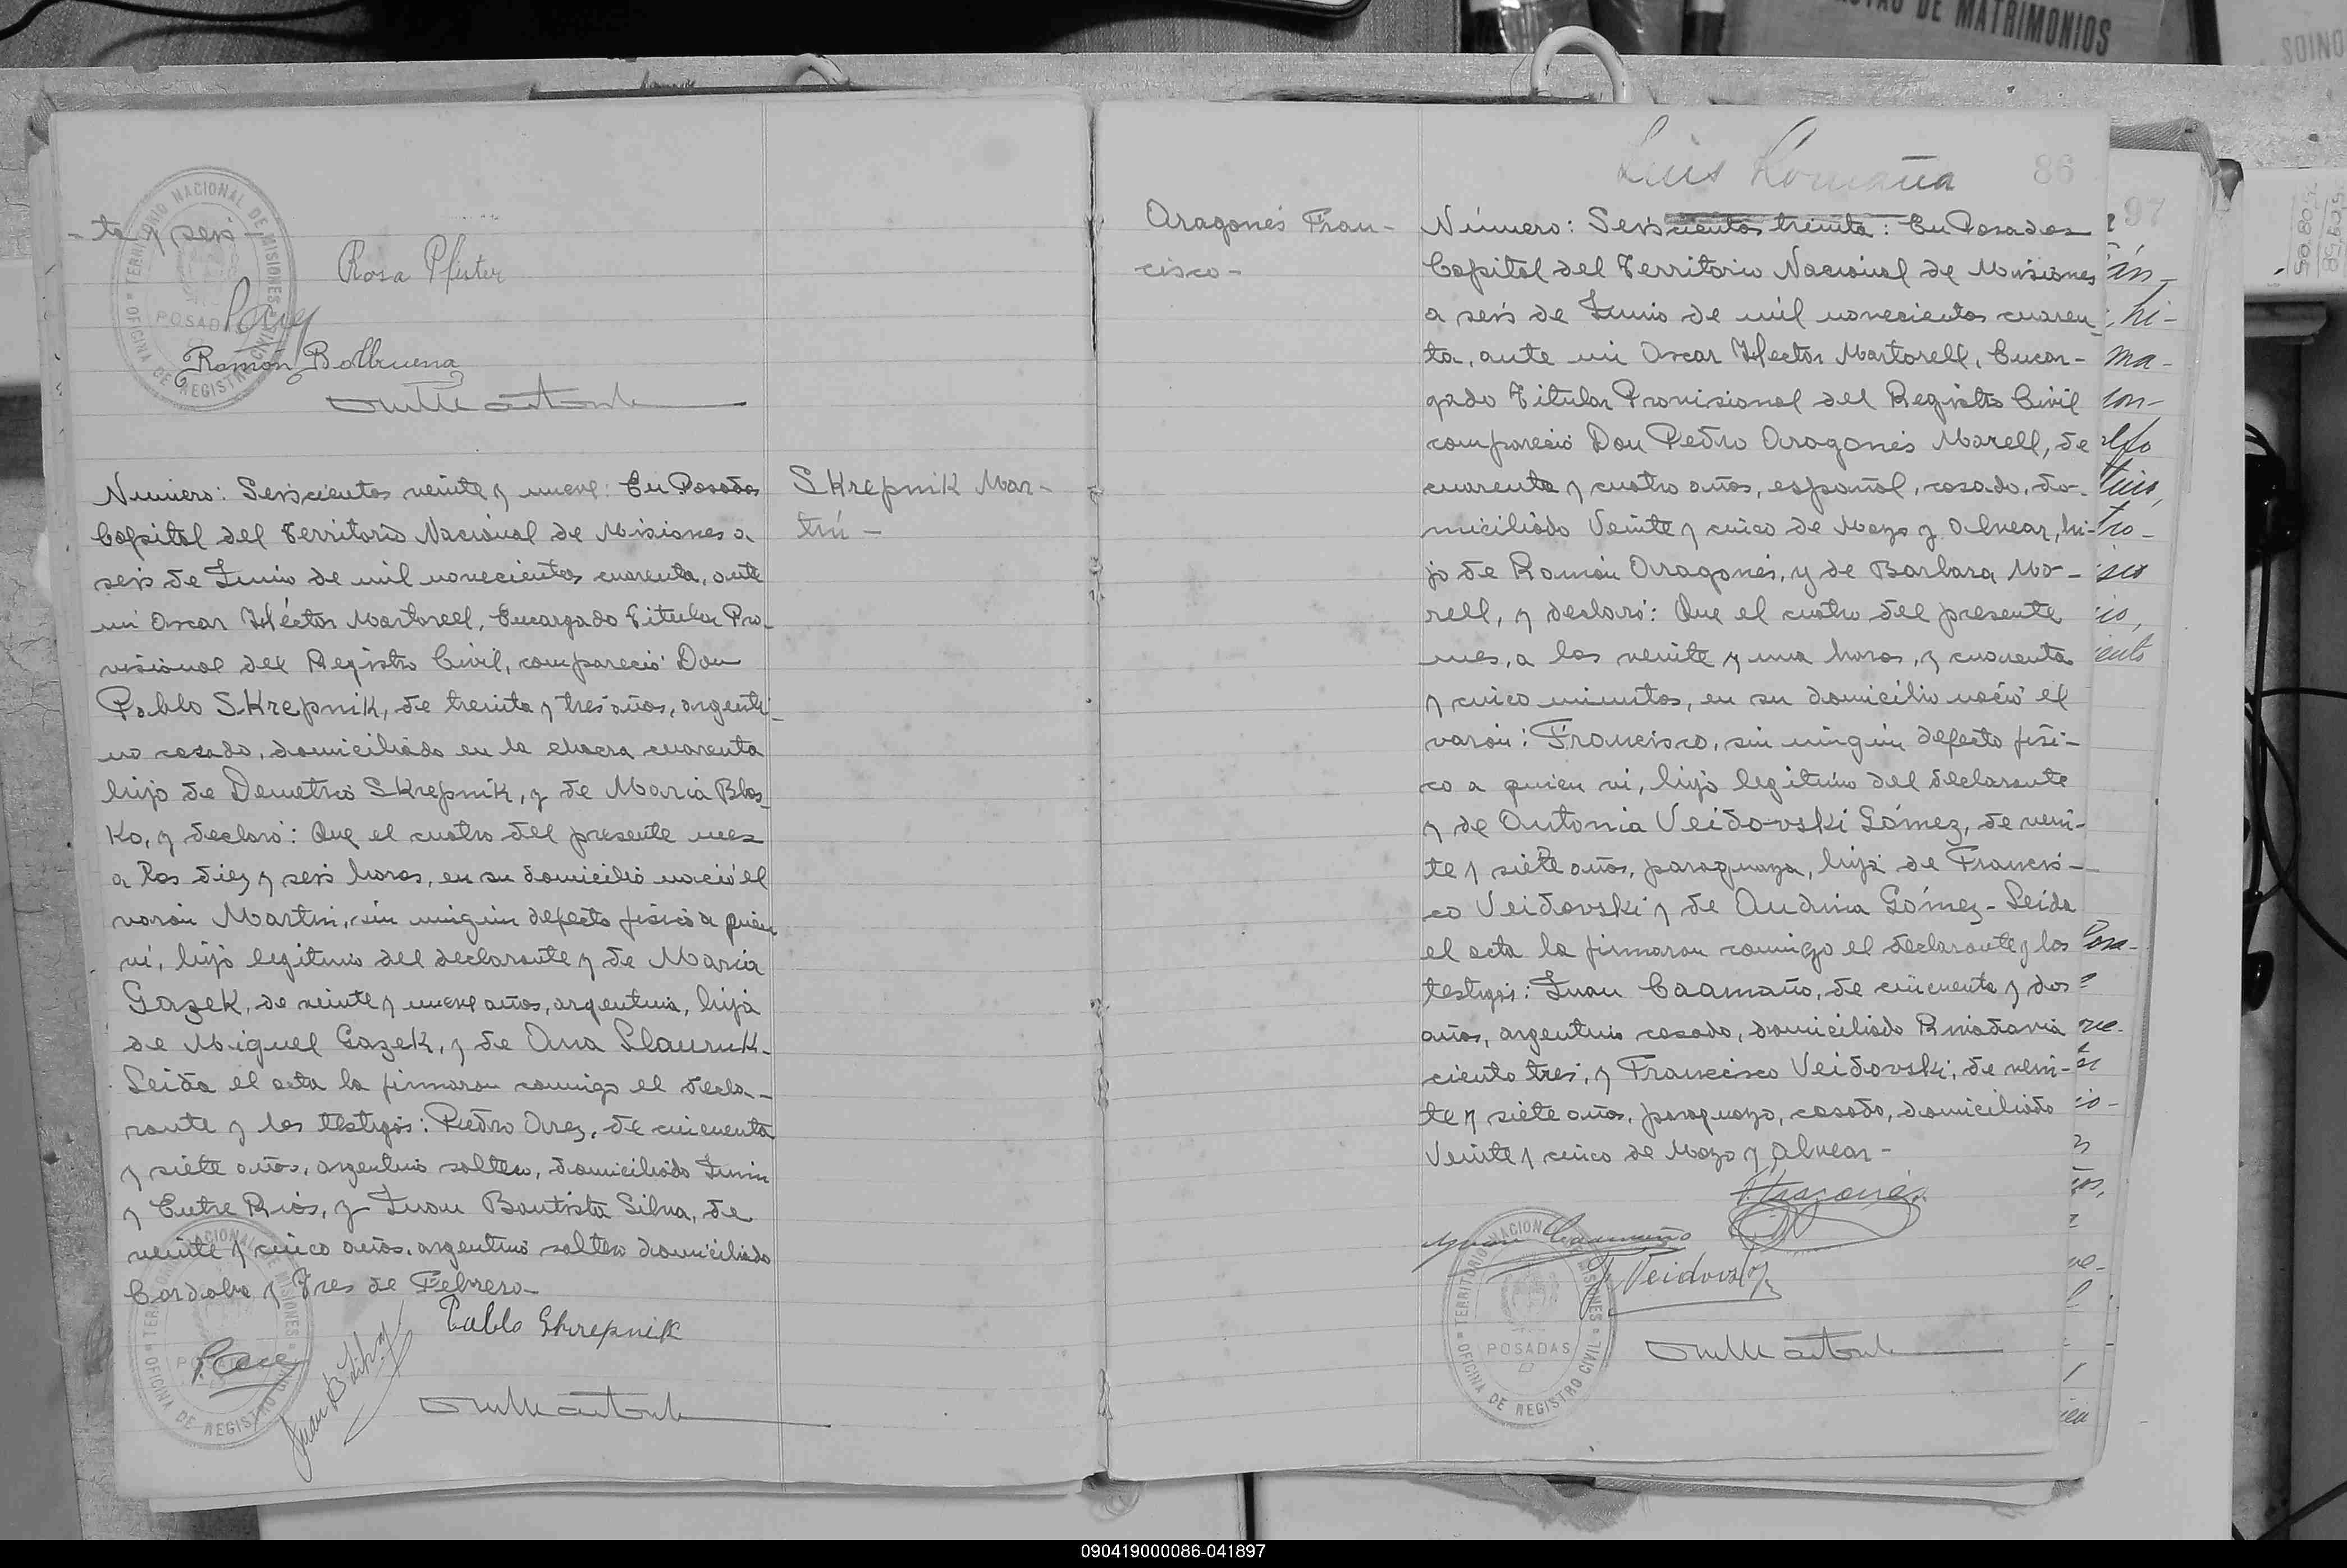 STAS DE MATRIMONIOS
- ta y seis -
Rosa Pfister
Ramón Balbuena
TERRITORIO NACIONAL DE MISIONES
POSADAS
OFICINA DE REGISTRO CIVIL
Número: Seiscientos veinte y nueve: En Posadas
Capital del Territorio Nacional de Misiones a
seis de Junio de mil novecientos cuarenta, ante
mi Oscar Héctor Martorell, Encargado Titular Pro-
visional del Registro Civil, compareció Don
Pablo Skrepnik, de treinta y tres años, argenti-
no casado, domiciliado en la chacra cuarenta
hijo de Demetrio Skrepnik, y de Maria Blas-
ko, y declaró: Que el cuatro del presente mes
a las diez y seis horas, en su domicilio nació el
varón Martin, sin ningún defecto fisico a quien
vi, hijo legitimo del declarante y de Maria
Gazek, de veinte y nueve años, argentina, hija
de Miguel Gazek, y de Ana Slauruk-
Leida el acta la firmaron conmigo el decla-
rante y los testigos: Pedro Arez, de cincuenta
y siete años, argentino soltero, domiciliado Junin
y Entre Rios, y Juan Bautista Silva, de
veinte y cinco años, argentino soltero domiciliado
Cordoba y Tres de Febrero-
Pablo Skrepnik
Juan B Silva
TERRITORIO NACIONAL DE MISIONES
POSADAS
OFICINA DE REGISTRO CIVIL
Skrepnik Mar-
tin -
Luis Romaña
86
Aragonés Fran-
cisco -
Número: Seiscientos treinta: En Posadas
Capital del Territorio Nacional de Misiones
a seis de Junio de mil novecientos cuaren-
ta, ante mi Oscar Hector Martorell, Encar-
gado Titular Provisional del Registro Civil
compareció Don Pedro Aragonés Morell, de
cuarenta y cuatro años, español, casado, do-
miciliado Veinte y cinco de Mayo y Alvear, hi-
jo de Ramón Aragonés, y de Barbara Mo-
rell, y declaró: Que el cuatro del presente
mes, a las veinte y una horas, y cuarenta
y cinco minutos, en su domicilio nació el
varón: Francisco, sin ningún defecto fisi-
co a quien vi, hijo legitimo del declarante
y de Antonia Veidovski Gómez, de vein-
te y siete años, paraguaya, hija de Francis-
co Veidovski y de Andina Gómez - Leida
el acta la firmaron conmigo el declarante y los
testigos: Juan Caamaño, de cincuenta y dos
años, argentino casado, domiciliado Rivadavia
ciento tres, y Francisco Veidovski, de vein-
te y siete años, paraguayo, casado, domiciliado
Veinte y cinco de Mayo y Alvear -
Aragonés
Juan Caamaño
F. Veidovsky
TERRITORIO NACIONAL DE MISIONES
POSADAS
OFICINA DE REGISTRO CIVIL
97
090419000086-041897